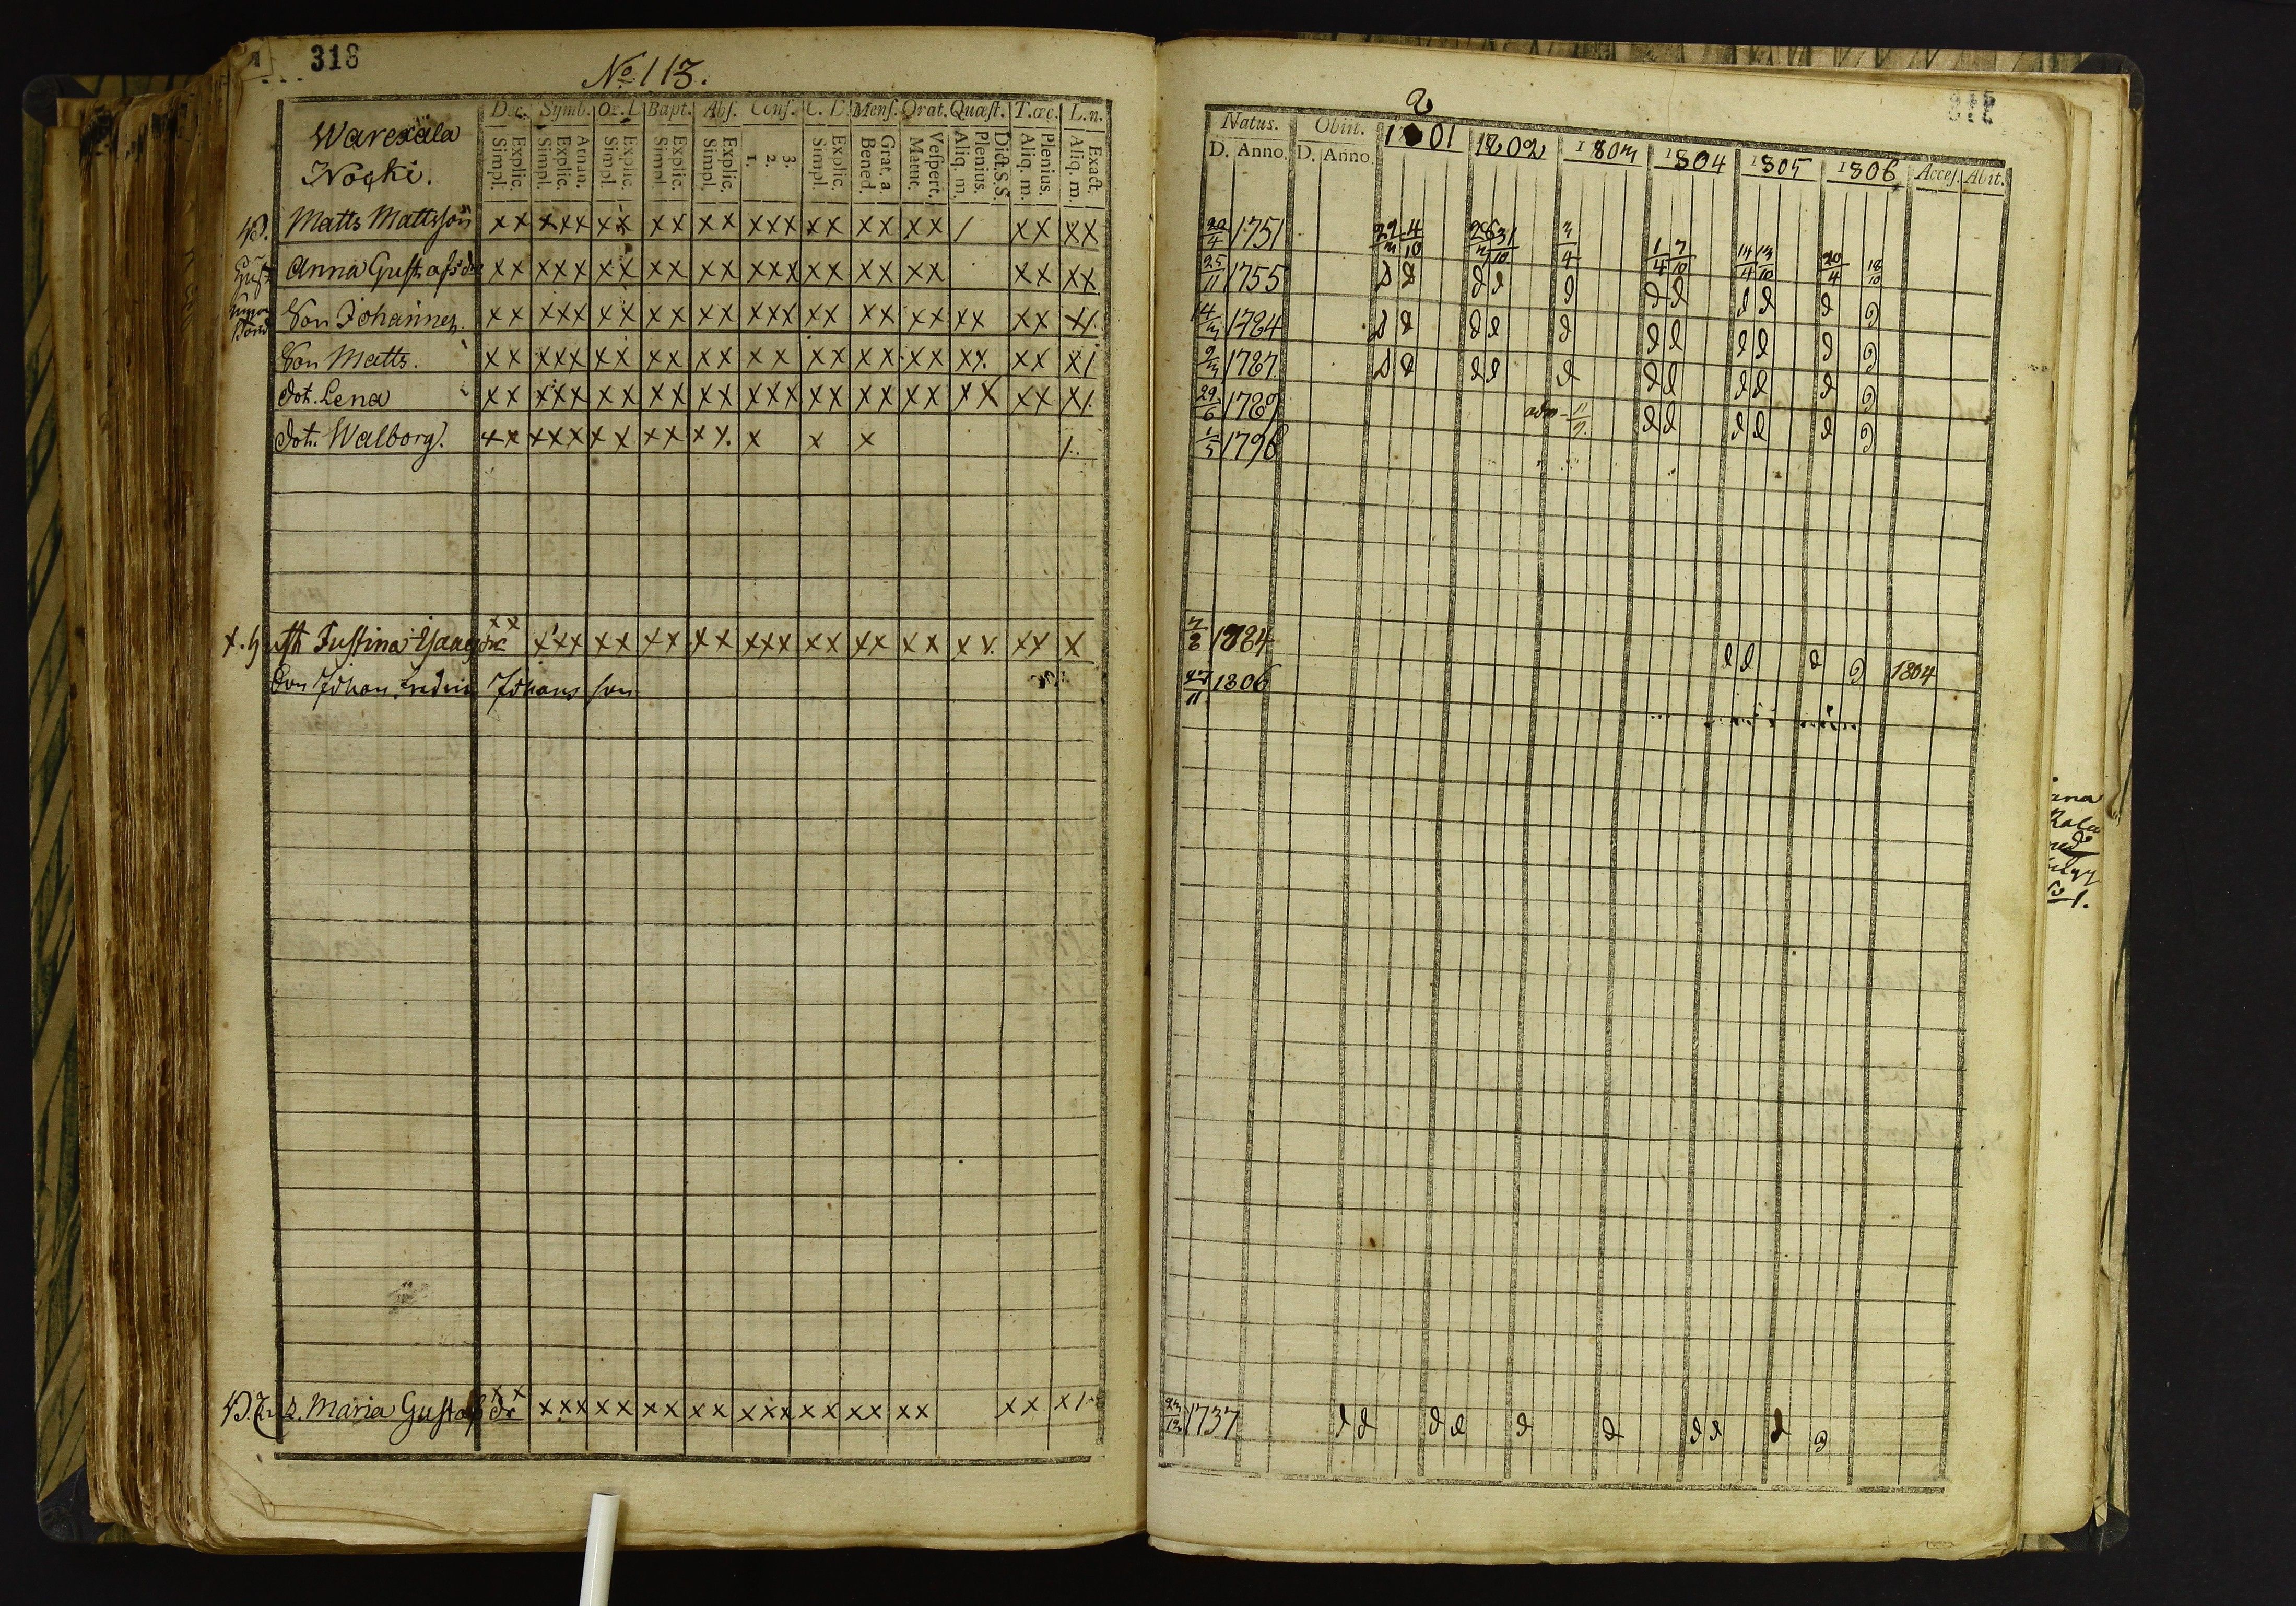 318
No 113.
Warexäla
Nocki.
Dec. Symb. Or. D Bapt. Abs. Conf. C. D Mens. Orat. Quæst. T. œc. L.n.
Explic. Simpl. Athan. Explic. Simpl. Explic. Simpl. Explic. Simpl. Explic. Simpl. 3. 2. 1. Explic. Simpl. Grat. a. Bened. Vespert. Matut. Dict. S.S. Plenius. Aliq. m. Plenius. Aliq. m. Exact. Aliq. m.
Matts Mattsson x x x x x x x x x x x x x x x x x x x x x / x x x x
Anna Gust. afs dr x x x x x x x x x x x x x x x x x x x x x x x x x
Son Johannes. x x x x x x x x x x x x x x x x x x x x x x x x x x x /
Son Matts. x x x x x x x x x x x x x x x x x x x x x x x x x x /
dot. Lena x x x x x x x x x x x x x x x x x x x x x x x x x x x /
dot. Walborg. x x x x x x x x x x x x x x /
Justina x x x x x x x x x x x x x x x x x x x x x x x x x x x
Son Johan Johans son
Maria Gustafs dr x x x x x x x x x x x x x x x x x x x x x x x x x /
2
Natus. Obiit. 1801 1802 1803 1804 1805 1806 Acces. Abit.
D. Anno. D. Anno.
20/4 1751 22/3 4/10 28/3 31/10 3/4 1/4 7/10 14/4 13/10 20/4 18/10
25/11 1755 d d d d d d d d d d d
14/3 1784 d d d d d d d d d d d
2/3 1787. d d d d d d d d d d d
29/6 1789 adm - 11/9. d d d d d d
1/5 1798
7/8 1784 d d d d 1804
27/11. 1806
23/12 1737 d d d d d d d d d d